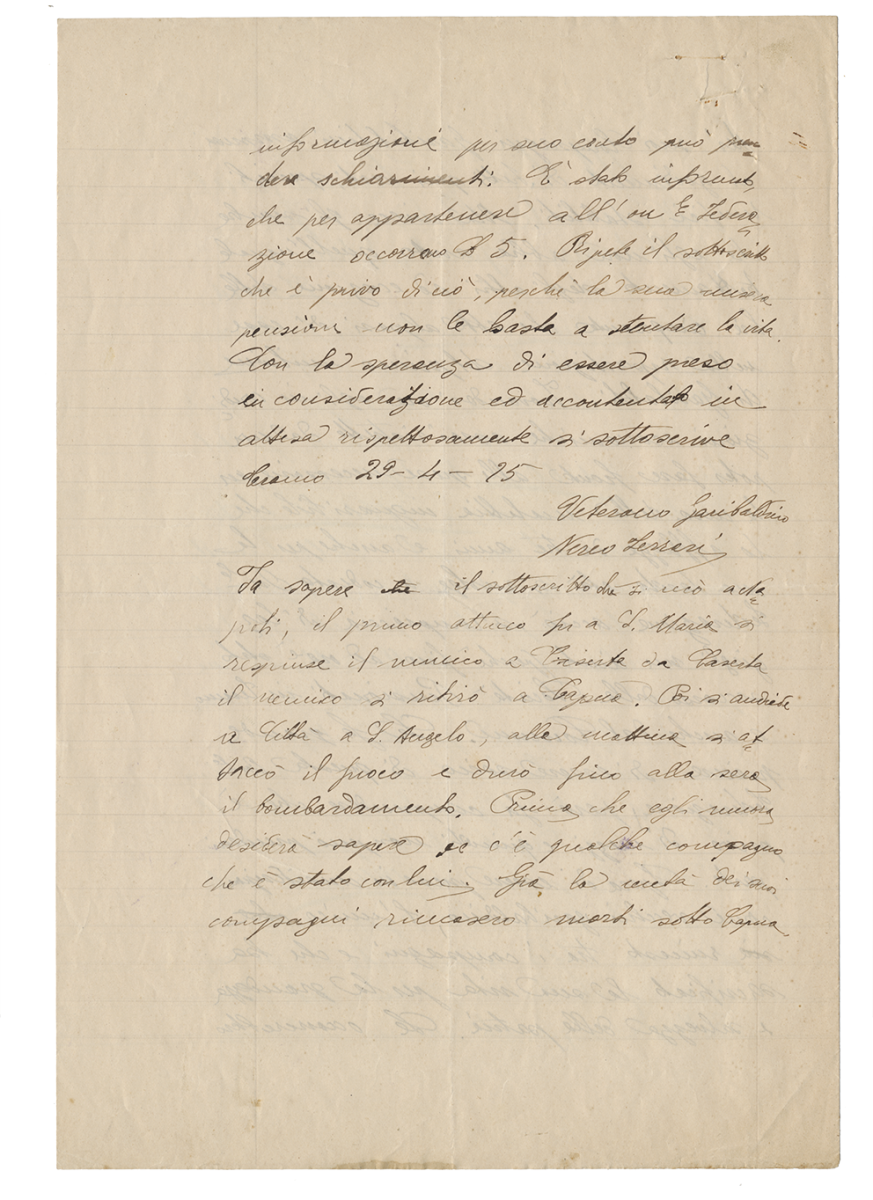 informazioni per suo conto può pren
dere schiarimenti. È stato informato,
che per appartenere all' on E Federa
zione occorrono L 5. Ripete il sottoscritto
che è privo di ciò, perchè la sua misera
pensioni non le basta a stentare la vita.
Con la speranza di essere preso
in considerazione ed accontentato in
attesa rispettosamente si sottoscrive
Teramo 29-4-25
Veterano Garibaldino
Nereo Ferrari
Fa sapere che il sottoscritto che si
piti, il primo attacco fu a S. Maria si
respinse il nemico a Caserta da Caserta
il nemico si ritirò a Capua. Poi si andiede
a Città a S. Angelo, alla mattina si at
taccò il fuoco e durò fino alla sera
il bombardamento. Prima che egli muora
desidera sapere se c'è qualche compagno
che è stato con lui. Già la metà dei suoi
compagni rimasero morti sotto Capua.